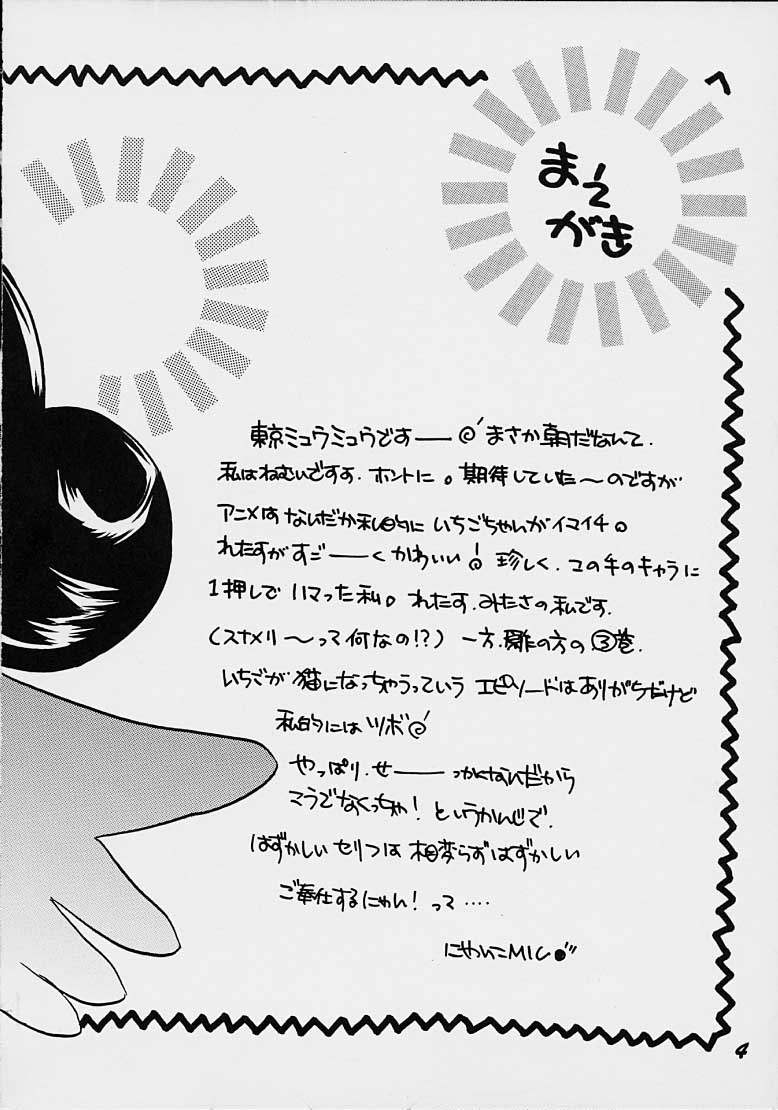 まえ
がき
東京ミュウミュウですー まさか朝だなんて.
私はねむいですよ. ホントに。期待していた〜のですが
アニメは なんだか私的に いちごちゃんがイマイチ。
れたすがすごーーく かわいい! 珍しく. この手のキャラに
1押しで ハマった私。れたす. みたさの私です.
(スナメリ〜って何なの!?) 一方. 雑の方の③巻.
いちごが 猫になっちゃうっていう エピソードはありがちだけど
私的にはツボ
やっぱり. せーーっかくなんだから
マうでなくっちゃ! というかんじで.
はずかしい セリフは 相変らずはずかしい
ご奉仕するにゃん! って ‥‥
にゃいこMIC
4